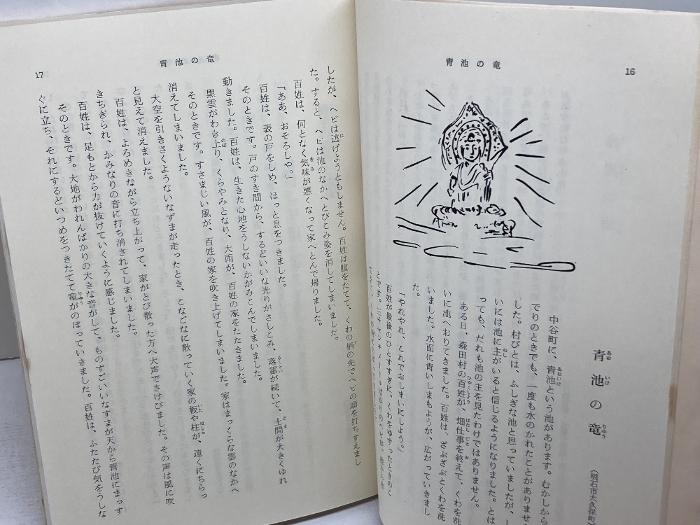 16
青池の竜
青池の竜
あお いけ りゅう
（明石市大久保町
中谷町に、青池という池があります。むかしか
でりのときでも、一度も水のかれたことがありませ
した。村びとは、ふしぎな池と思っていましたが、
いには池に主がいると信じるようになりました。とは
っても、だれも池の主を見たわけではありません。
ある日、森田村の百姓が、畑仕事を終えて、くわを洗
いに池へおりてきました。百姓は、ざぶざぶとくわを洗
いました。水面に青いしまもようが、広がっていきまし
た。
「やれやれ、これでおしまいにしよう。」
百姓が最後のひとすすぎに、くわをゆすったときのこ
17
青池の竜
したが、ヘビは逃げようともしません。百姓は腹をたてて、くわの柄の先でヘビの頭を打ちすえまし
た。すると、ヘビは池のなかへとびこみ姿を消してしまいました。
百姓は、何となく気味が悪くなって家へとんで帰りました。
「ああ、おそろしや。」
百姓は、表の戸をしめ、ほっと息をつきました。
そのときです。戸のすき間から、するどいいな光りがさしこみ、落雷が続いて、土間が大きくゆれ
動きました。百姓は、生きた心地をうしないかがみこんでしまいました。
黒雲がわき上り、くらやみとなり、大雨が、百姓の家をたたきました。
そのときです。すさまじい風が、百姓の家を吹き上げてしまいました。家はまっくらな雲のなかへ
消えてしまいました。
大空を引きさくようないなずまが走ったとき、こなごなに散っていく家の板や柱が、遠くにちらっ
と見えて消えました。
百姓は、よろめきながら立ち上がって、家がとび散った方へ大声でさけびました。その声は風に吹
きちぎられ、かみなりの音に打ち消されてしまいました。
百姓は、足もとから力が抜けていくように感じました。
そのときです。大地がわれんばかりの大きな音がして、ものすごいいなずまが天から青池にまっす
ぐに立ち、それにするどいつめをつきたてて竜がのぼっていきました。百姓は、ふたたび気をうしな